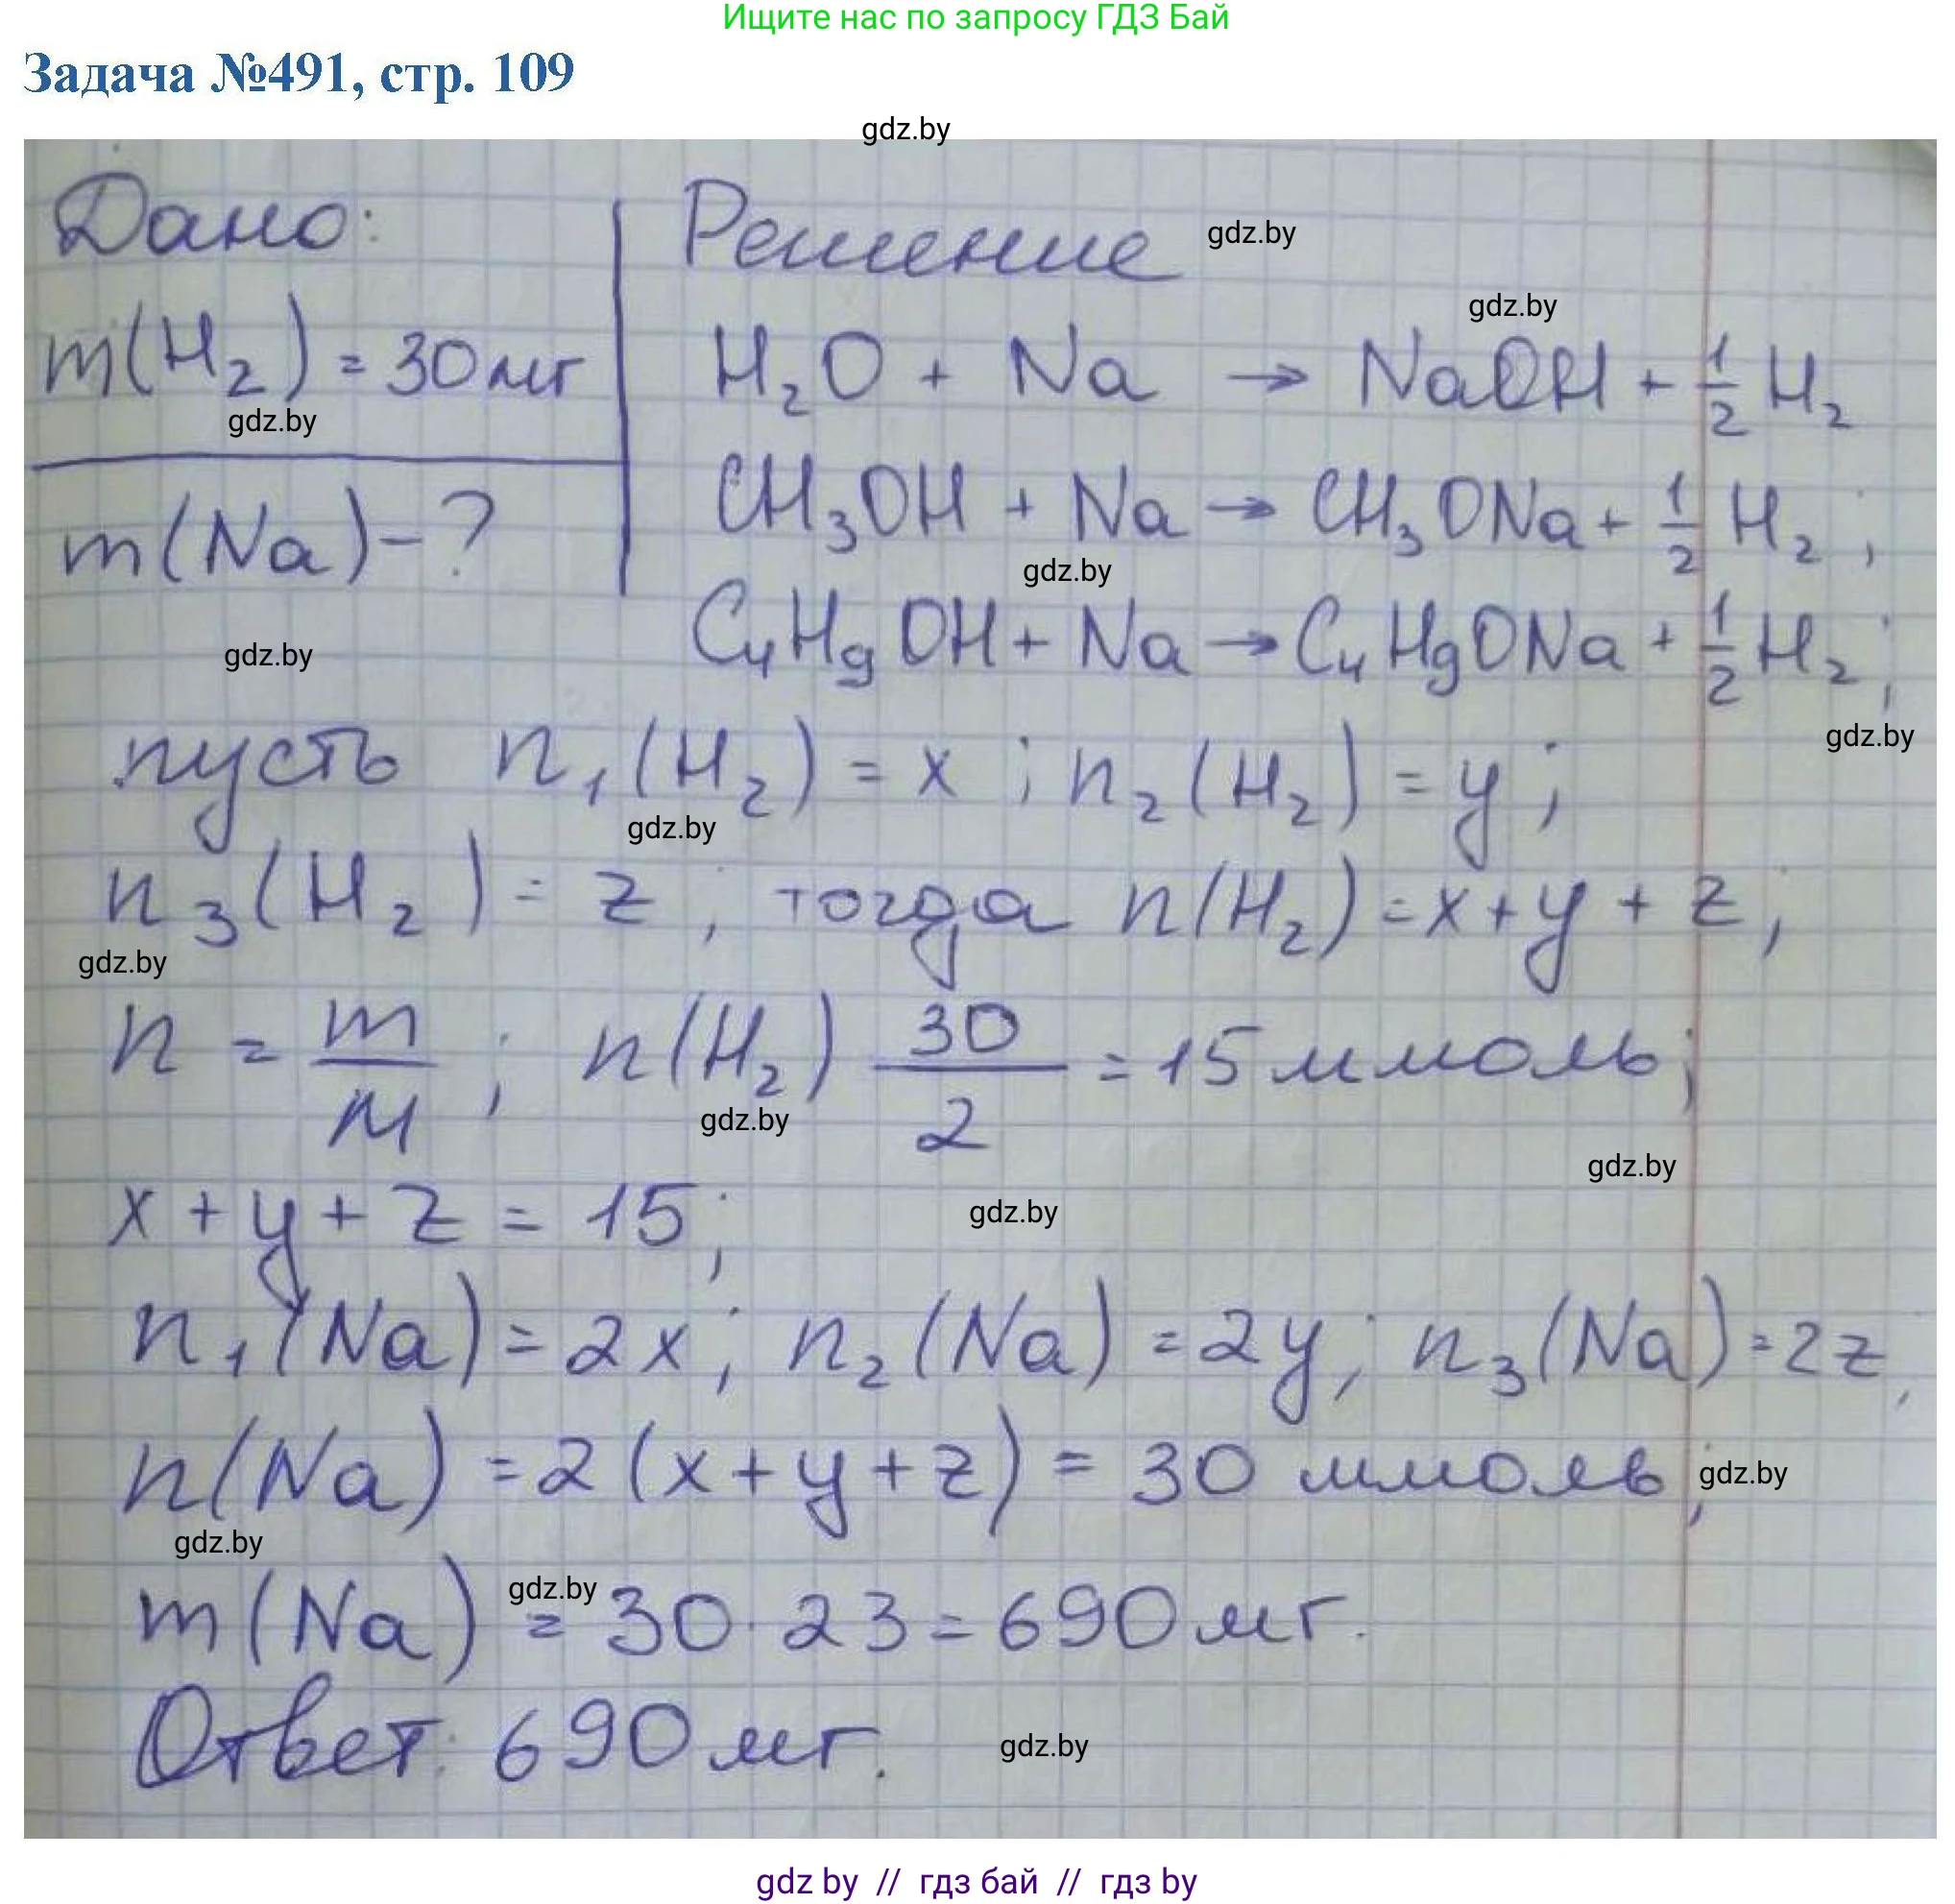 Ищите нас по запросу ГДЗ Бай
Задача №491, стр. 109
gdz.by
Дано:
Решение
gdz.by
gdz.by
m(H₂) = 30 мг
H₂O + Na → NaOH + 1/2 H₂
gdz.by
m(Na) - ?
CH₃OH + Na → CH₃ONa + 1/2 H₂;
gdz.by
C₄H₉OH + Na → C₄H₉ONa + 1/2 H₂;
gdz.by
gdz.by
пусть n₁(H₂) = x; n₂(H₂) = y;
gdz.by
n₃(H₂) = z; тогда n(H₂) = x + y + z;
gdz.by
n = m/M; n(H₂) 30/2 = 15 ммоль;
gdz.by
gdz.by
x + y + z = 15;
gdz.by
n₁(Na) = 2x; n₂(Na) = 2y; n₃(Na) = 2z;
n(Na) = 2(x + y + z) = 30 ммоль;
gdz.by
gdz.by
gdz.by
m(Na) = 30 · 23 = 690 мг.
Ответ: 690 мг.
gdz.by
gdz by // гдз бай // гдз by